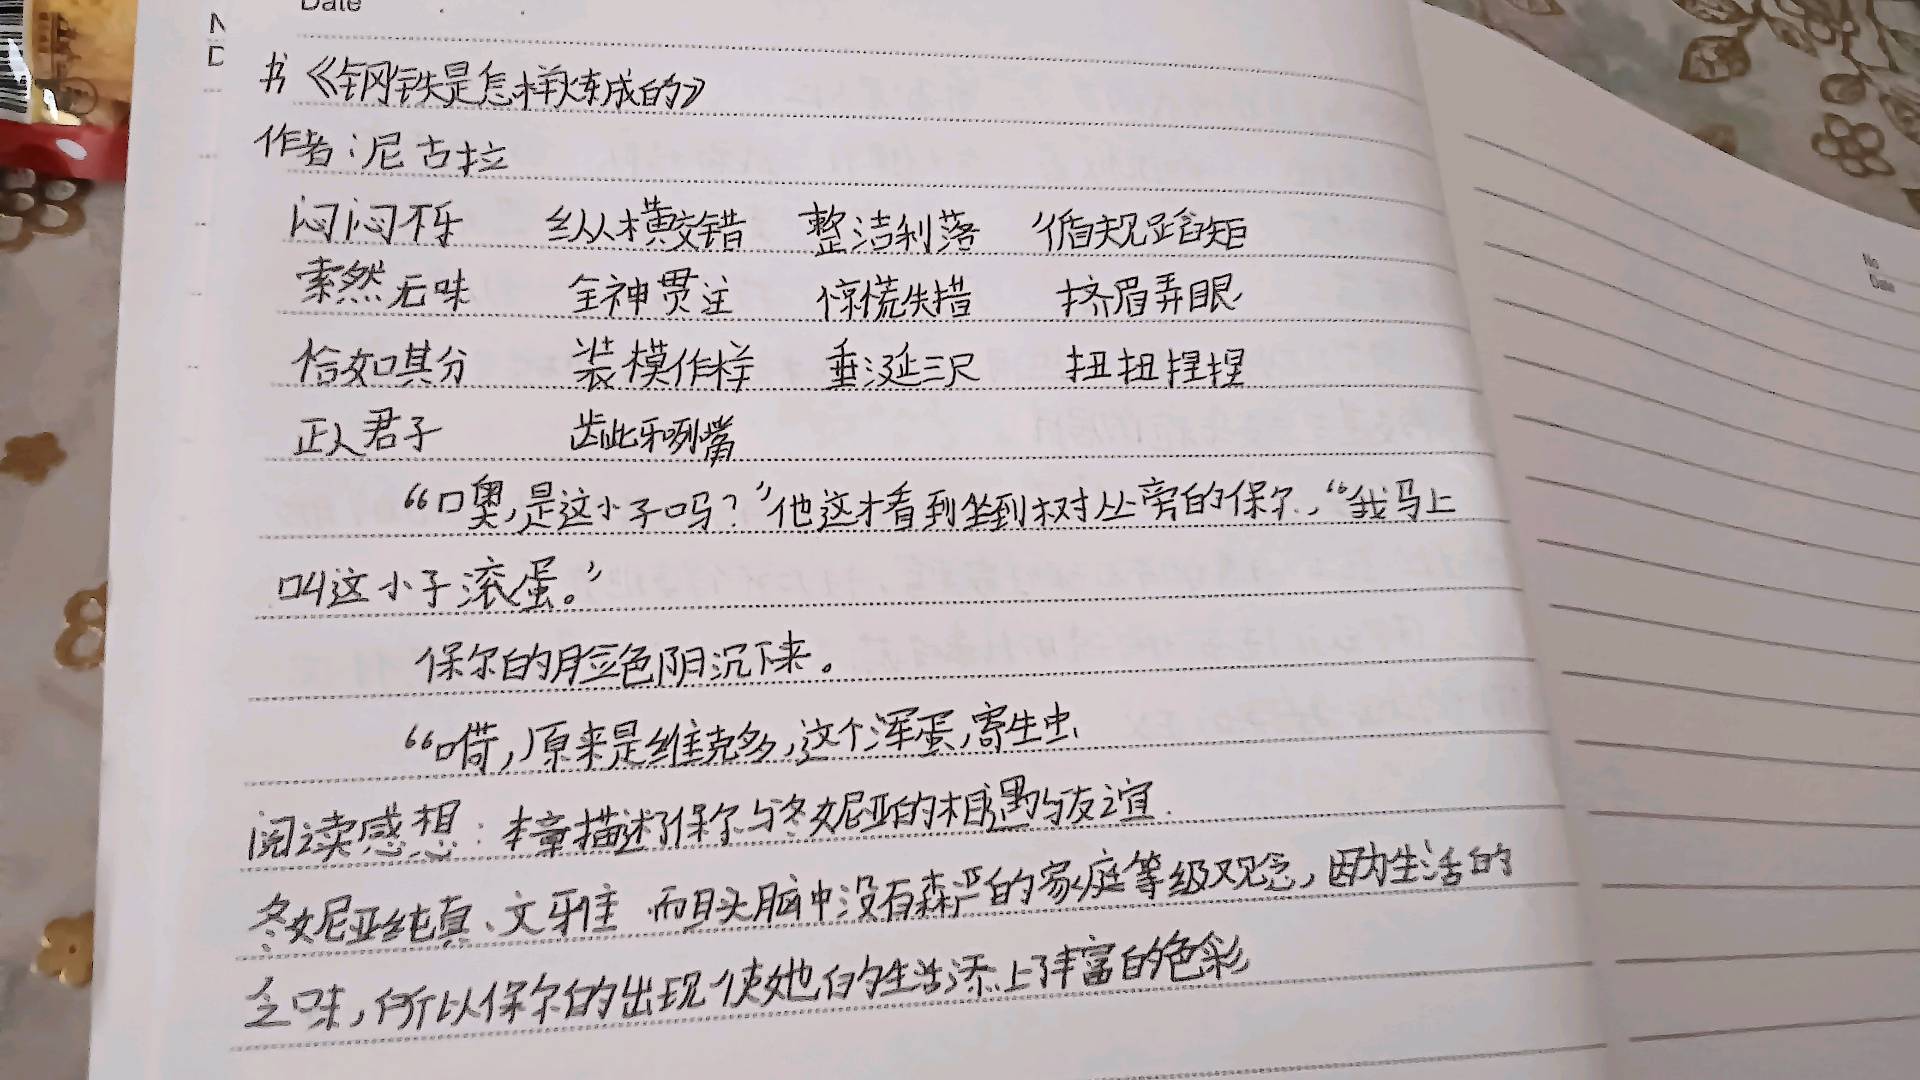 Date
N
D
书《钢铁是怎样炼成的》
作者：尼古拉
闷闷不乐 纵横交错 整洁利落 循规蹈矩
索然无味 全神贯注 惊慌失措 挤眉弄眼
恰如其分 装模作样 垂涎三尺 扭扭捏捏
正人君子 龇牙咧嘴
“噢,是这小子吗？”他这才看到坐到树丛旁的保尔,“我马上
叫这小子滚蛋。”
保尔的脸色阴沉下来。
“嗬,原来是维克多,这个浑蛋,寄生虫
阅读感想：本章描述了保尔与冬妮亚的相遇与友谊.
冬妮亚纯真、文雅 而且头脑中没有森严的家庭等级观念，因为生活的
乏味,所以保尔的出现使她的生活添上了丰富的色彩
No
Date